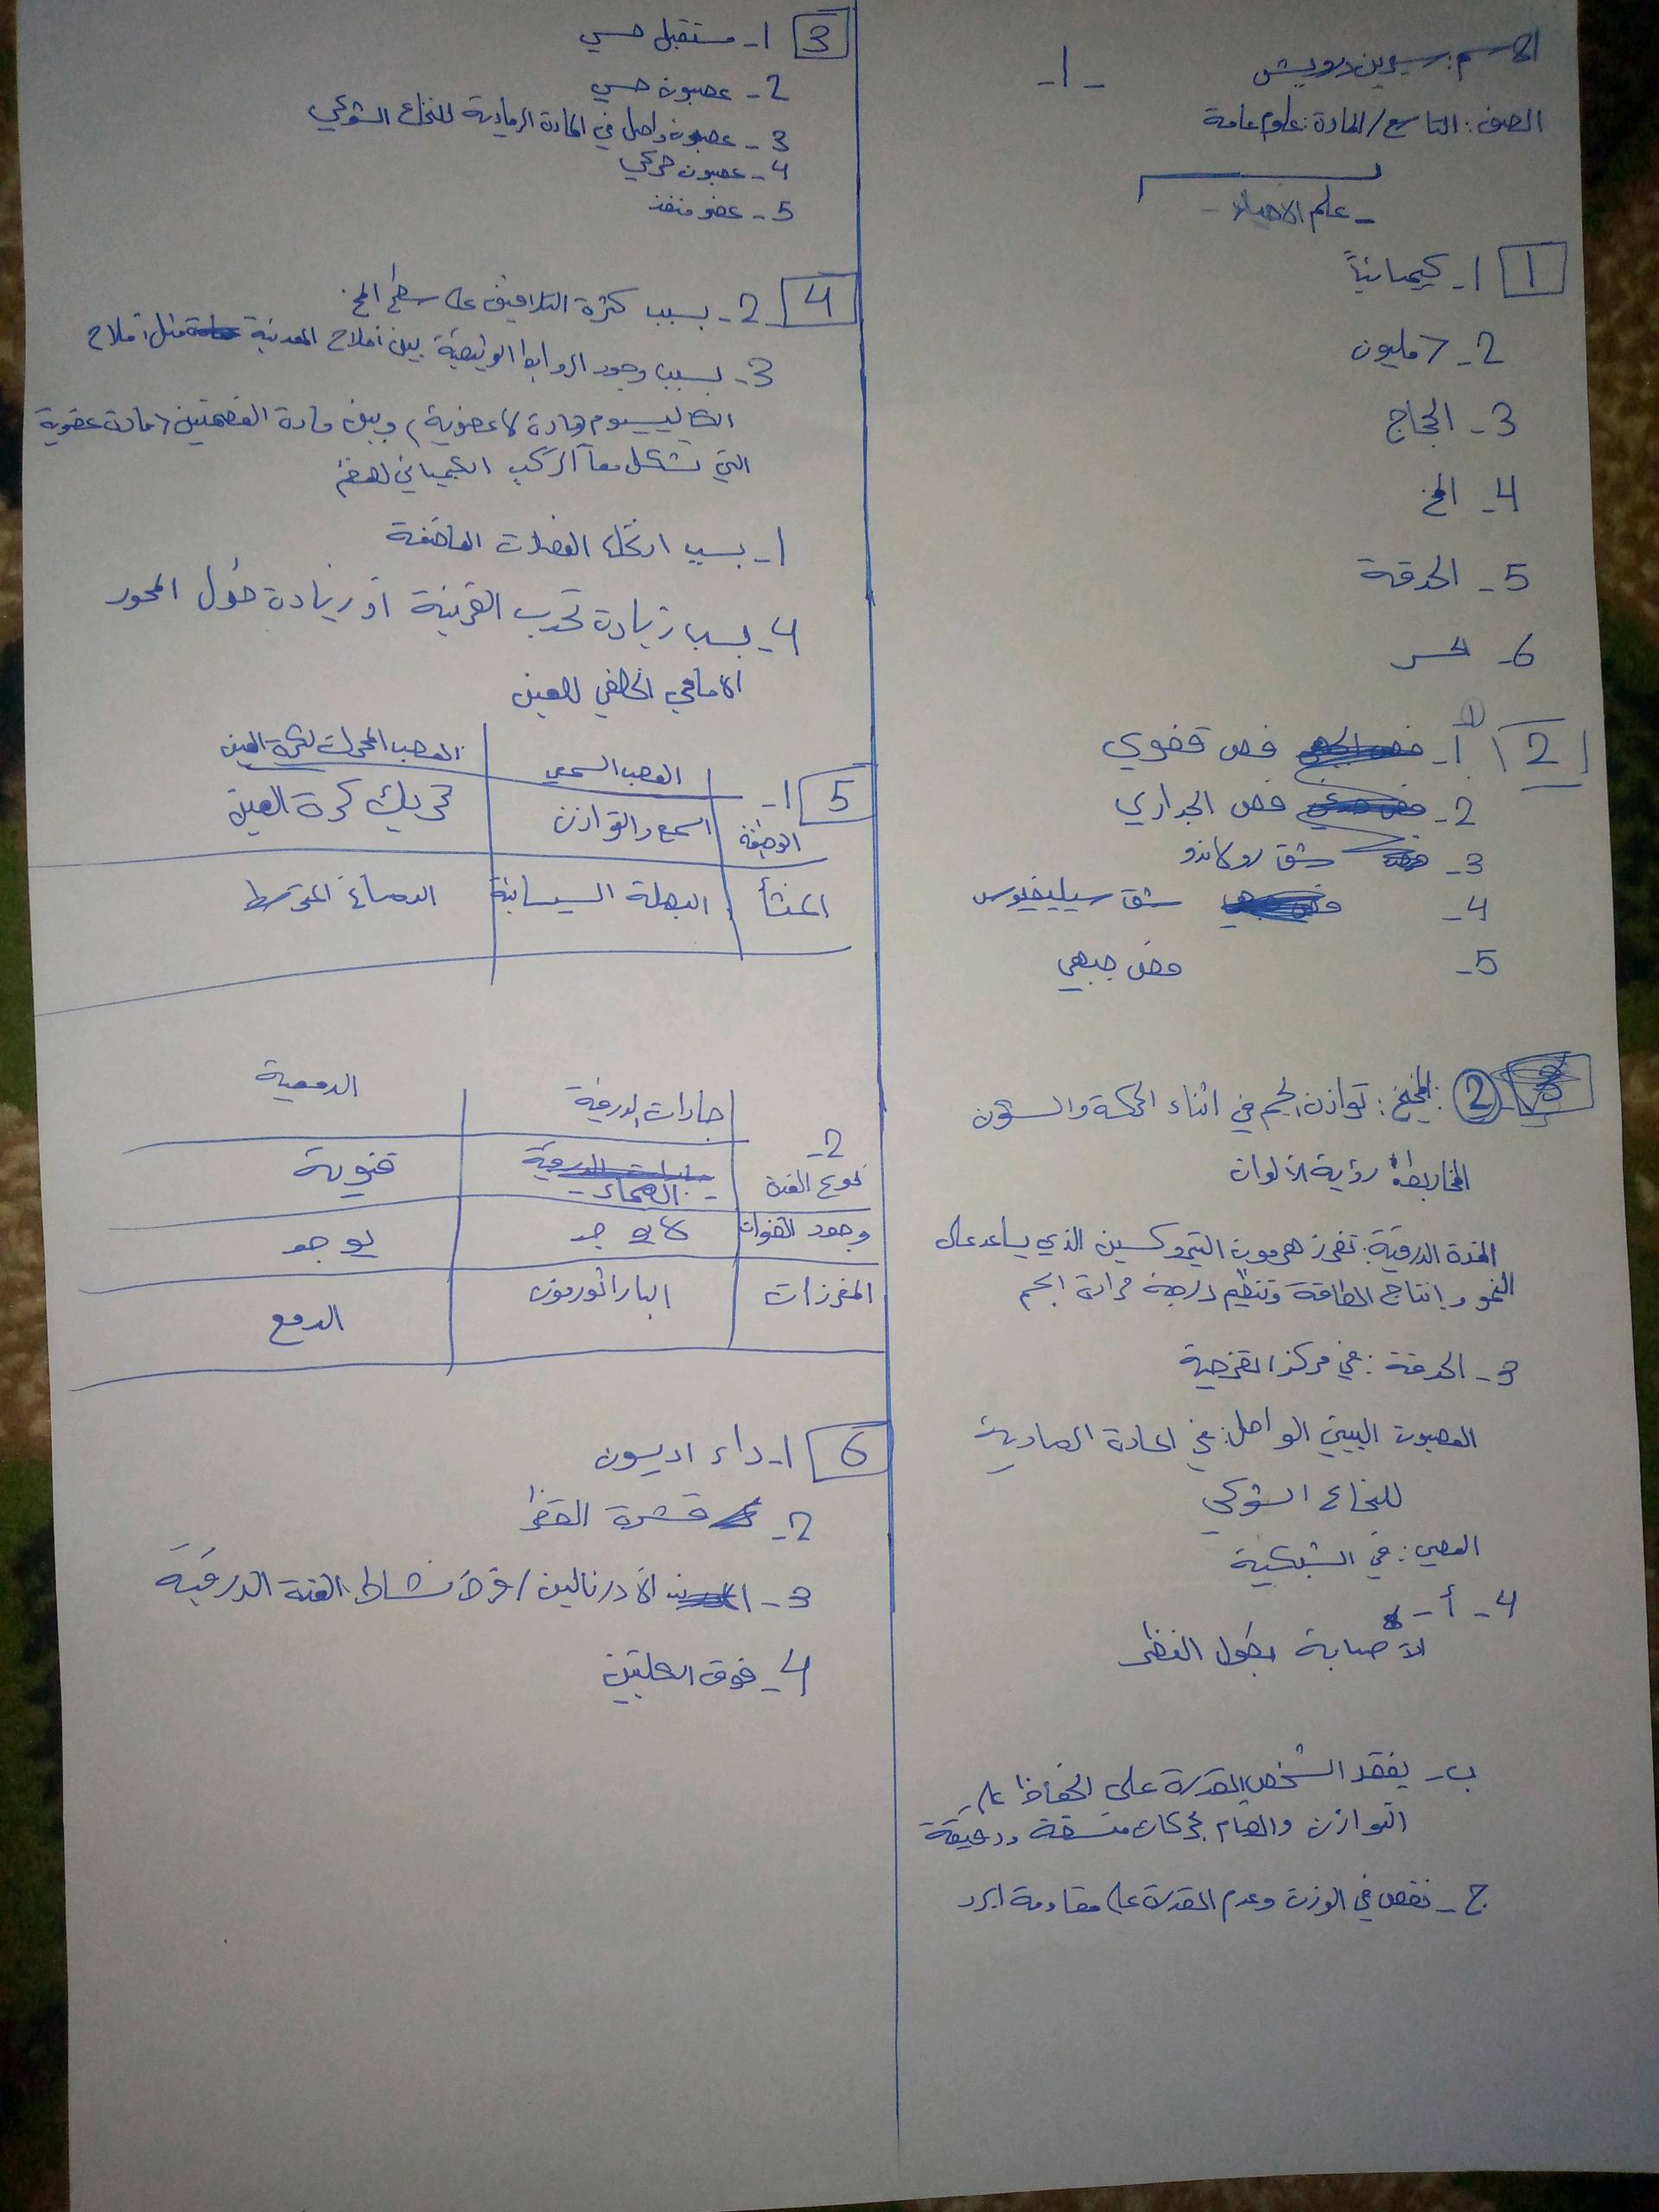 الاسم: سيرين درويش
-1-
الصف: التاسع/المادة: علوم عامة
- علم الاحياء -
1 1- كيميائياً
2- 7 مليون
3- الحجاج
4- المخ
5- الحدقة
6-
2 1) 1- فص قفوي
2- فص الجداري
3- شق رولاندو
4- شق سيلفيوس
5- فص جبهي
2 المخيخ: توازن الجسم في اثناء الحركة والسكون
المخاريط: رؤية الألوان
الغدة الدرقية: تفرز هرمون التيروكسين الذي يساعد على
النمو وإنتاج الطاقة وتنظيم درجة حرارة الجسم
3- الحدقة: في مركز القزحية
العصبون البيني الواصل: في المادة الرمادية
للنخاع الشوكي
العصي: في الشبكية
4- أ-
لأصابة بطول النظر
ب- يفقد الشخص القدرة على الحفاظ على
التوازن والقيام بحركات منسقة ودقيقة
ج- نقص في الوزن وعدم القدرة على مقاومة البرد
3 1- مستقبل حسي
2- عصبون حسي
3- عصبون واصل في المادة الرمادية للنخاع الشوكي
4- عصبون حركي
5- عضو منفذ
4 2- بسبب كثرة التلافيف على سطح المخ
3- بسبب وجود الروابط الوثيقة بين املاح المعدنية مثل املاح
الكالسيوم (مادة لاعضوية) وبين مادة العظمين (مادة عضوية
التي تشكل معاً المركب الكيميائي للعظم
1- بسبب ارتخاء العضلات العاضفة
4- بسبب زيادة تحدب القرنية او زيادة طول المحور
الامامي الخلفي للعين
5 1- العصب السمعي العصب المحرك لكرة العين
الوظيفة السمع والتوازن تحريك كرة العين
المنشأ البصلة السيسائية الدماغ المتوسط
2- جارات الدرقية الدمعية
نوع الغدة الصماء قنوية
وجود القنوات لا يوجد يوجد
المفرزات الباراثورمون الدمع
6 1- داء اديسون
2- قشرة الكظر
3- الأدرنالين / فرط نشاط الغدة الدرقية
4- فوق الكليتين